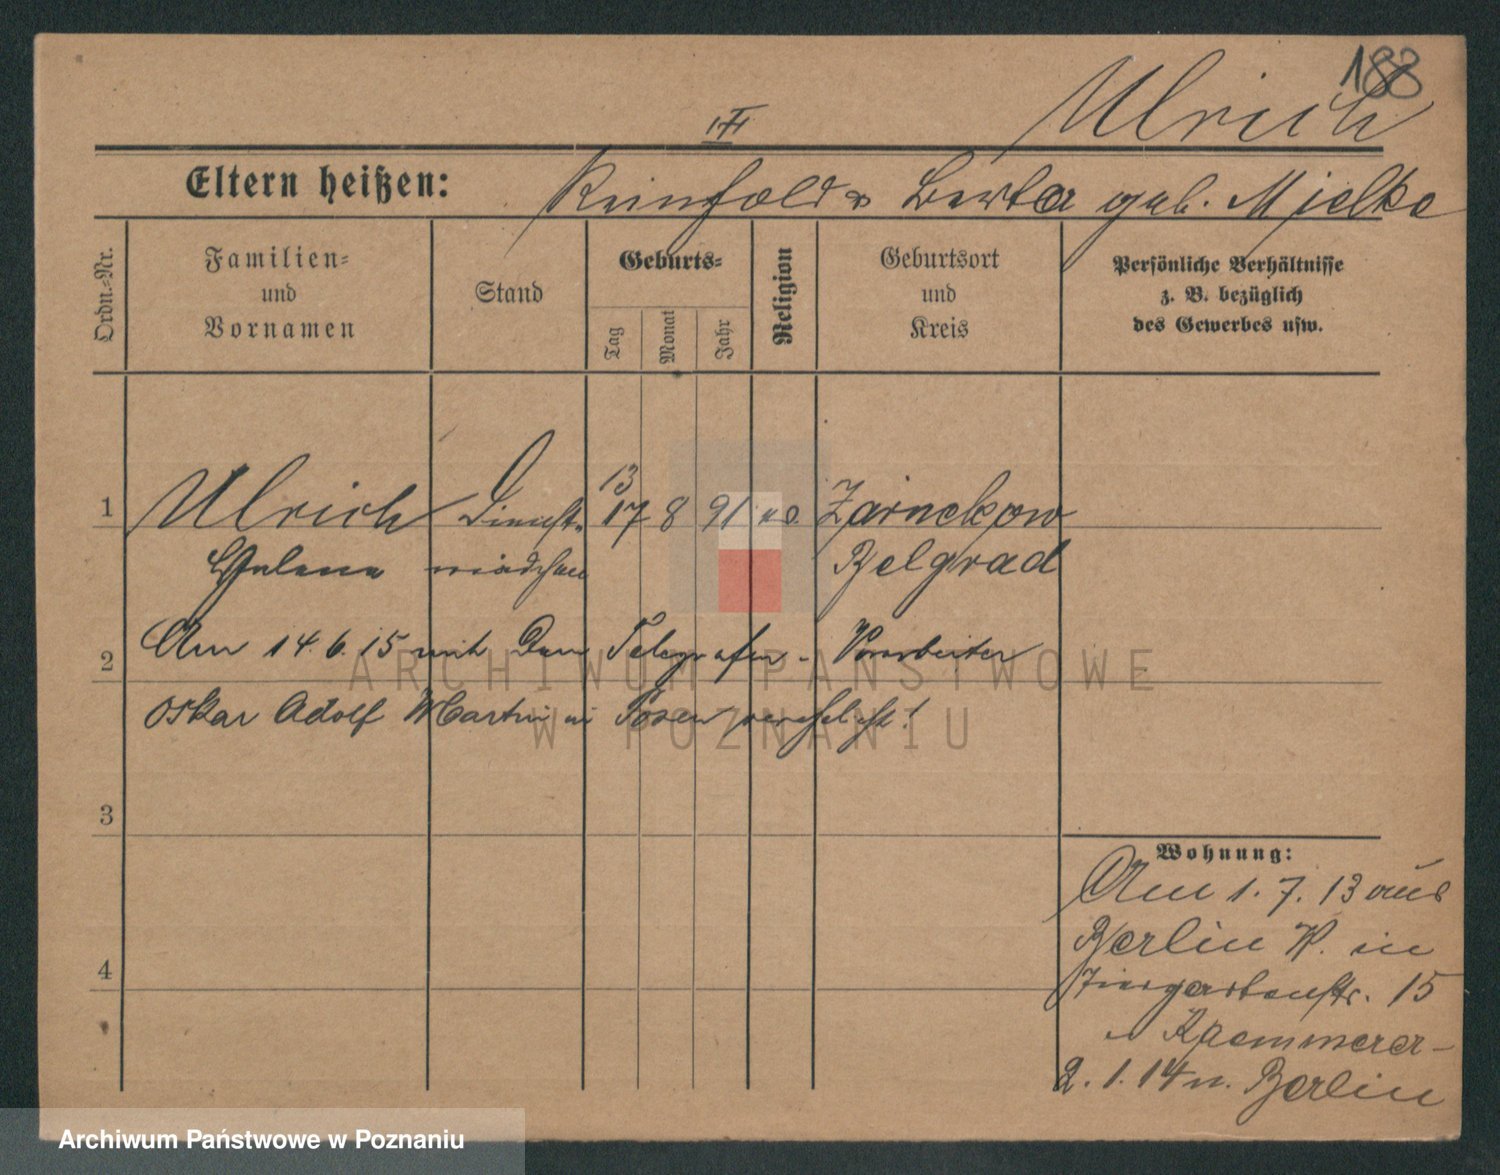 188
Ulrich
III
Eltern heißen: Reinhold u Berta geb. Mielke
Ordn.-Nr.
Familien-
und
Vornamen
Stand
Geburts-
Tag
Monat
Jahr
Religion
Geburtsort
und
Kreis
Persönliche Verhältnisse
z. B. bezüglich
des Gewerbes usw.
13
1 Ulrich Dienst- 17 8 91 ev. Zarnekow
Helene mädchen Belgrad
2 Am 14.6.15 mit dem Telegrafen-Vorarbeiter
Oskar Adolf Martin in Posen verehelicht!
3
4
Wohnung:
Am 1.7.13 aus
Berlin W. in
Tiergartenstr. 15
Kaemmerer-
2.1.14 n. Berlin
ARCHIWUM PAŃSTWOWE
W POZNANIU
Archiwum Państwowe w Poznaniu